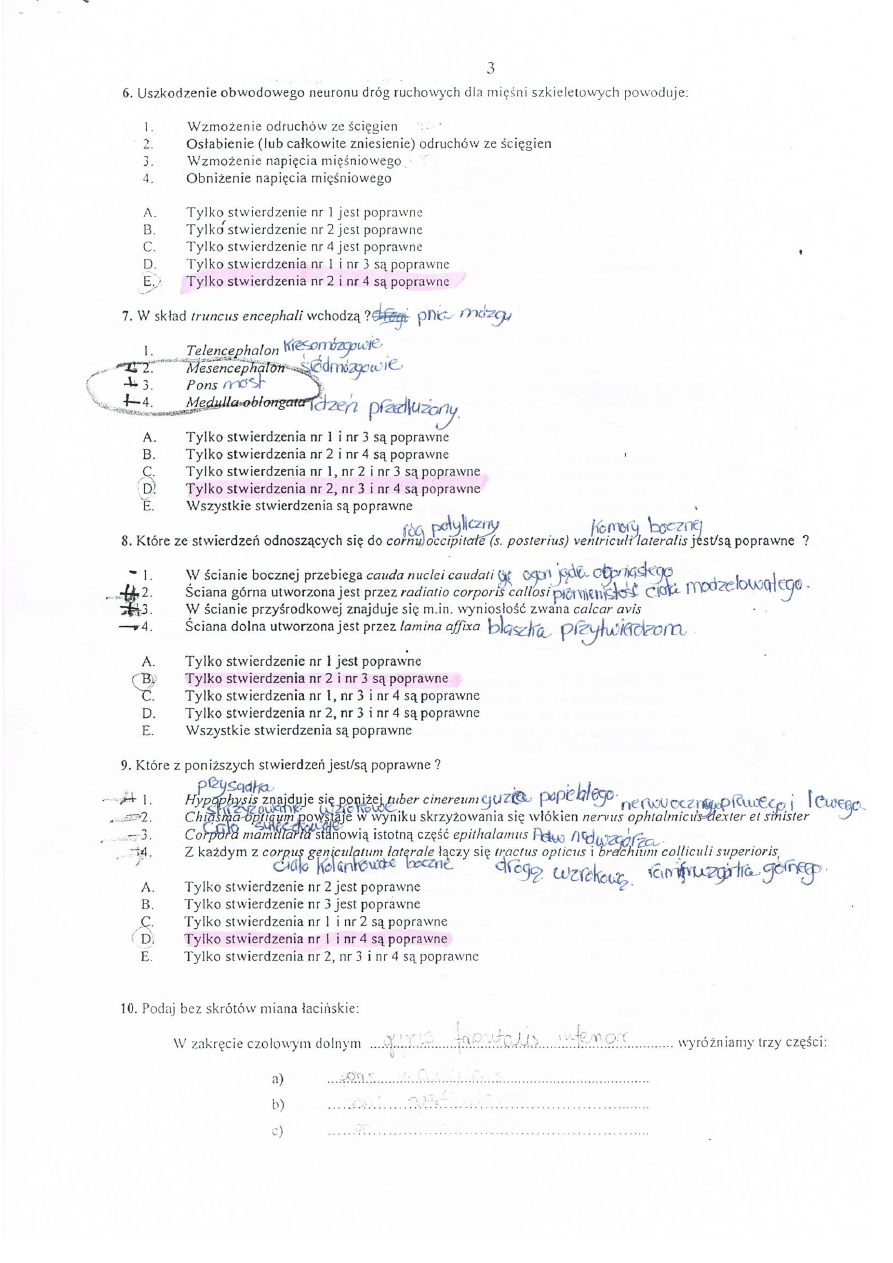 3
6. Uszkodzenie obwodowego neuronu dróg ruchowych dla mięśni szkieletowych powoduje:
1. Wzmożenie odruchów ze ścięgien
2. Osłabienie (lub całkowite zniesienie) odruchów ze ścięgien
3. Wzmożenie napięcia mięśniowego
4. Obniżenie napięcia mięśniowego
A. Tylko stwierdzenie nr 1 jest poprawne
B. Tylko stwierdzenie nr 2 jest poprawne
C. Tylko stwierdzenie nr 4 jest poprawne
D. Tylko stwierdzenia nr 1 i nr 3 są poprawne
E. Tylko stwierdzenia nr 2 i nr 4 są poprawne
7. W skład truncus encephali wchodzą ? pnia mózgu
1. Telencephalon kresomózgowie
2. Mesencephalon śródmózgowie
3. Pons most
4. Medulla oblongata rdzeń przedłużony
A. Tylko stwierdzenia nr 1 i nr 3 są poprawne
B. Tylko stwierdzenia nr 2 i nr 4 są poprawne
C. Tylko stwierdzenia nr 1, nr 2 i nr 3 są poprawne
D. Tylko stwierdzenia nr 2, nr 3 i nr 4 są poprawne
E. Wszystkie stwierdzenia są poprawne
róg potyliczny komory bocznej
8. Które ze stwierdzeń odnoszących się do cornu occipitale (s. posterius) ventriculi lateralis jest/są poprawne ?
1. W ścianie bocznej przebiega cauda nuclei caudati ogon jądra ogoniastego
2. Ściana górna utworzona jest przez radiatio corporis callosi promienistość ciała modzelowatego.
3. W ścianie przyśrodkowej znajduje się m.in. wyniosłość zwana calcar avis
4. Ściana dolna utworzona jest przez lamina affixa blaszka przytwierdzona
A. Tylko stwierdzenie nr 1 jest poprawne
B. Tylko stwierdzenia nr 2 i nr 3 są poprawne
C. Tylko stwierdzenia nr 1, nr 3 i nr 4 są poprawne
D. Tylko stwierdzenia nr 2, nr 3 i nr 4 są poprawne
E. Wszystkie stwierdzenia są poprawne
9. Które z poniższych stwierdzeń jest/są poprawne ?
przysadka
1. Hypophysis znajduje się poniżej tuber cinereum guza popielatego.
skrzyżowanie wzrokowe nerwu ocznego prawego i lewego.
2. Chiasma opticum powstaje w wyniku skrzyżowania się włókien nervus ophtalmicus dexter et sinister
ciało suteczkowate
3. Corpora mamillaria stanowią istotną część epithalamus nadwzgórza.
4. Z każdym z corpus geniculatum laterale łączy się tractus opticus i brachium colliculi superioris
ciało kolankowate boczne drogę wzrokową. górnego.
A. Tylko stwierdzenie nr 2 jest poprawne
B. Tylko stwierdzenie nr 3 jest poprawne
C. Tylko stwierdzenia nr 1 i nr 2 są poprawne
D. Tylko stwierdzenia nr 1 i nr 4 są poprawne
E. Tylko stwierdzenia nr 2, nr 3 i nr 4 są poprawne
10. Podaj bez skrótów miana łacińskie:
W zakręcie czołowym dolnym gyrus frontalis inferior wyróżniamy trzy części:
a)
b)
c)